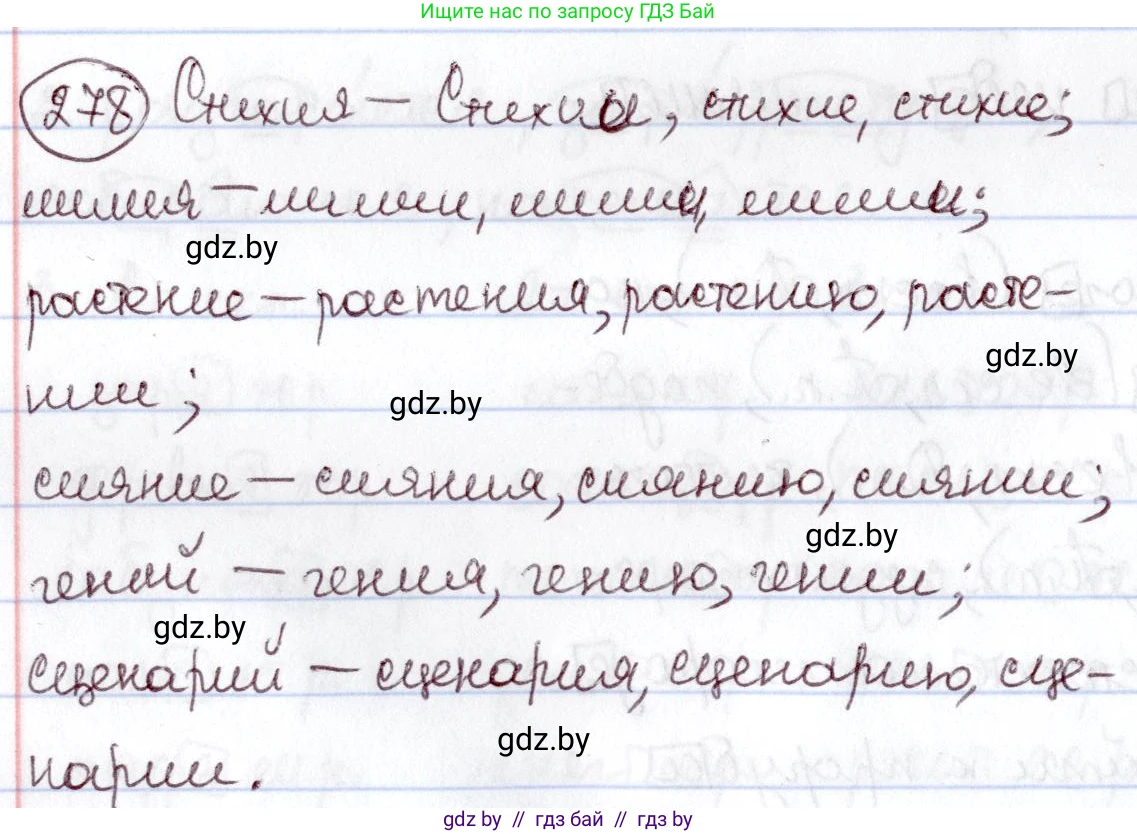 Ищите нас по запросу ГДЗ Бай
278 Стихия — Стихии, стихие, стихие;
линия — линии, линии, линии;
gdz.by
растение — растения, растению, расте-
gdz.by
нии;
gdz.by
сияние — сияния, сиянию, сиянии;
gdz.by
гений — гения, гению, гении;
gdz.by
сценарий — сценария, сценарию, сце-
gdz.by
нарии.
gdz.by // гдз бай // гдз by